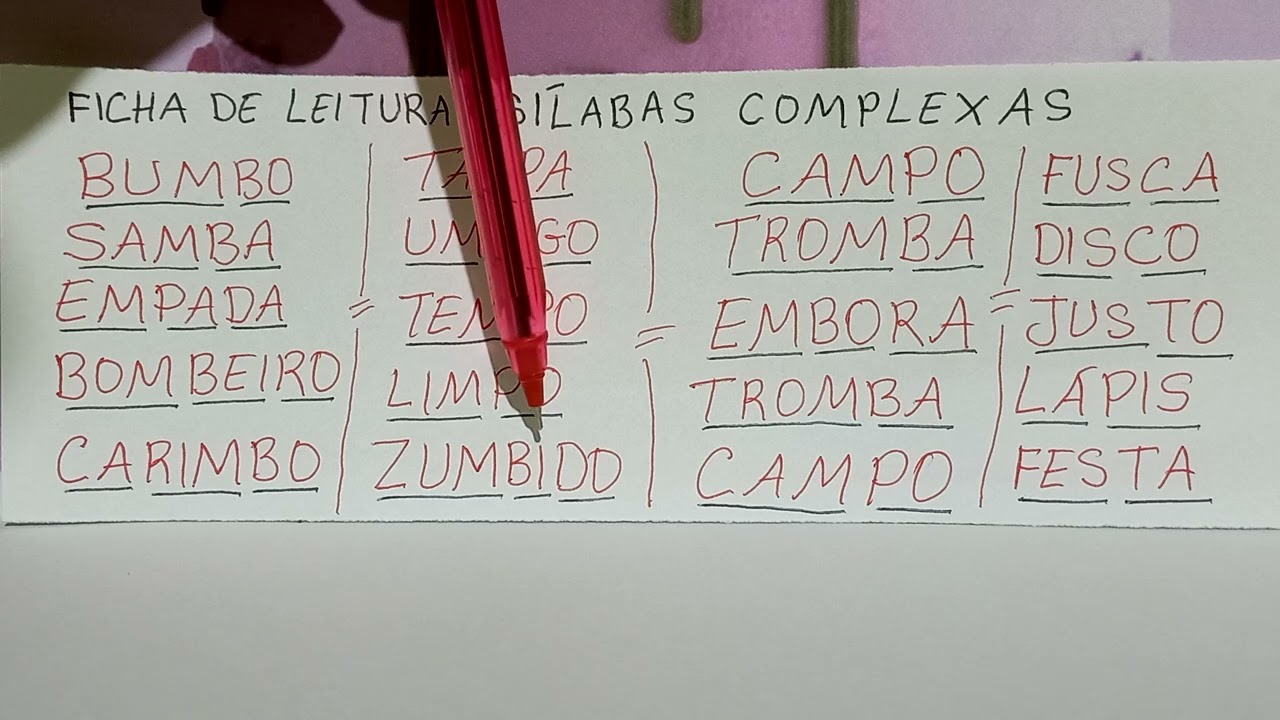 FICHA DE LEITURA SÍLABAS COMPLEXAS
BUMBO
SAMBA
EMPADA =
BOMBEIRO
CARIMBO
TEMPO =
LIMPO
ZUMBIDO
CAMPO
TROMBA
EMBORA =
TROMBA
CAMPO
FUSCA
DISCO
JUSTO
LÁPIS
FESTA